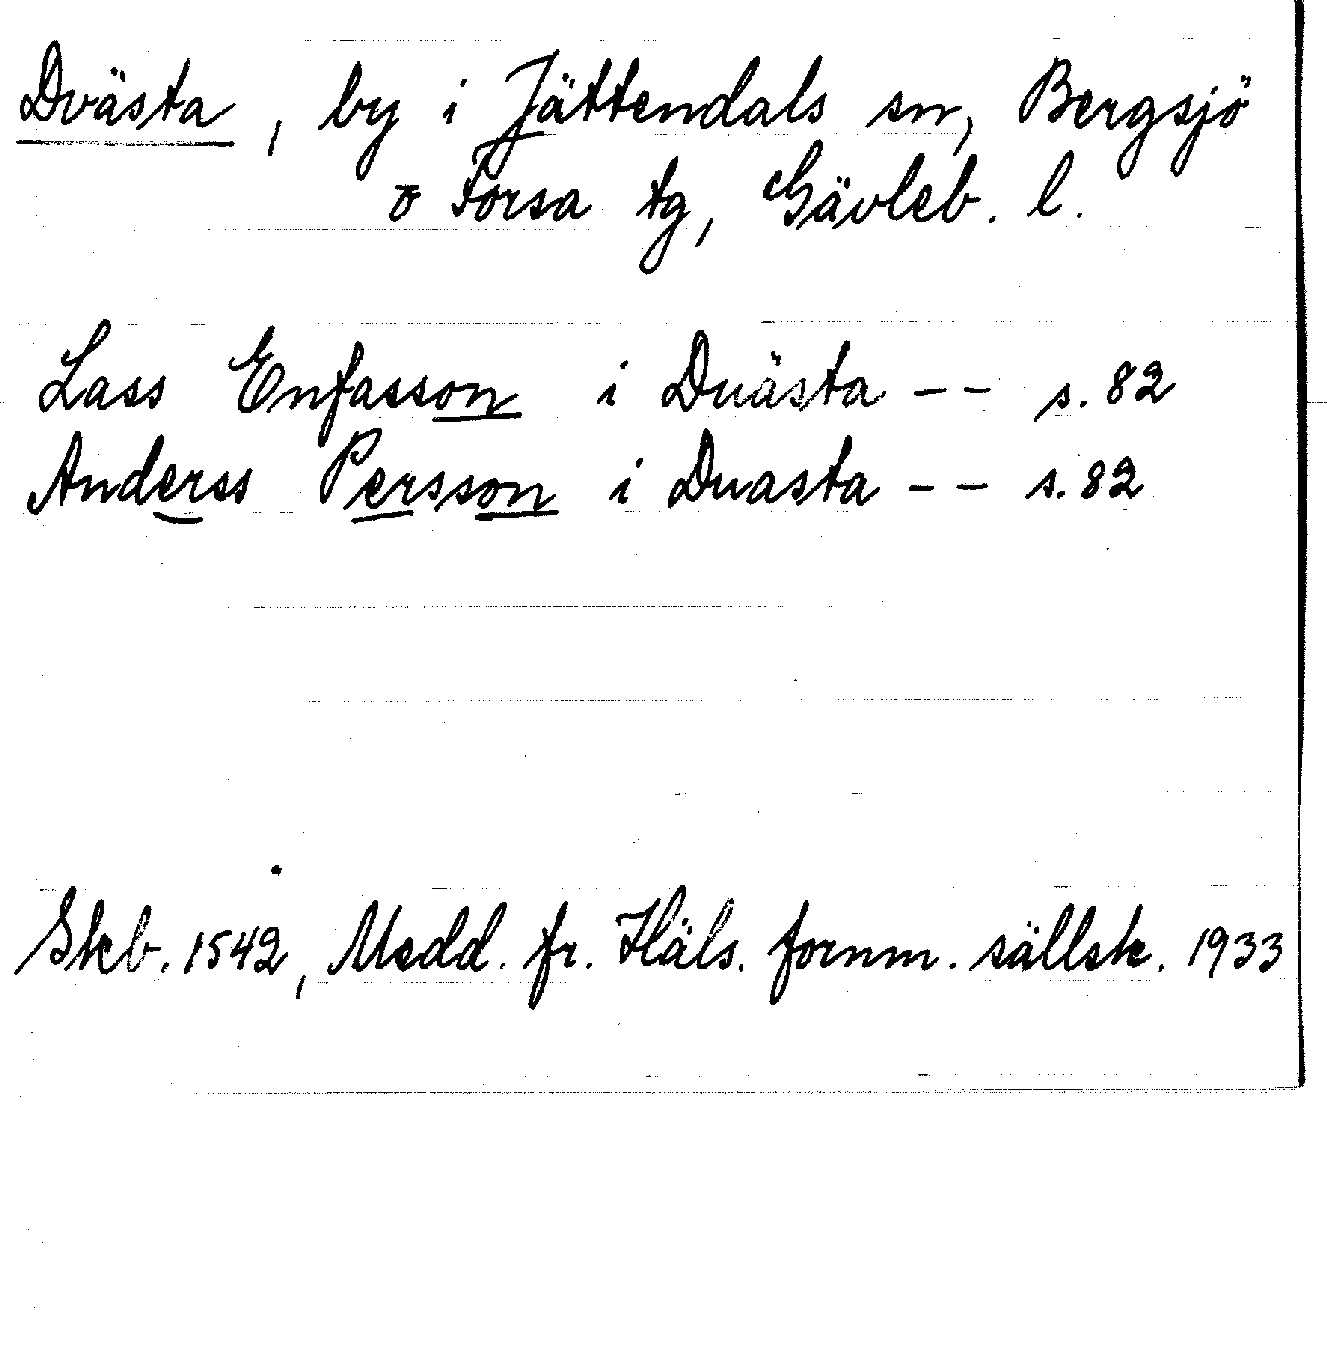 Dvästa, by i Jättendals sn, Bergsjö
o Forsa tg, Gävleb. l.
Lass Enfasson i Duästa -- s. 82
Anderss Persson i Duasta -- s. 82
Skb. 1542, Medd. fr. Häls. fornm. sällsk. 1933